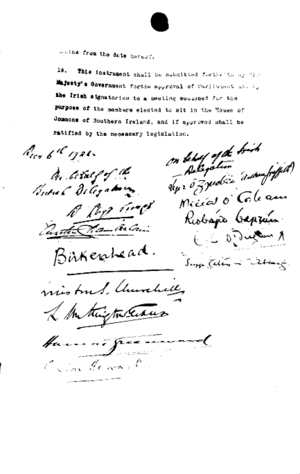 from the date hereof.
18. This instrument shall be submitted forthwith by His
Majesty's Government for the approval of Parliament and by
the Irish signatories to a meeting summoned for the
purpose of the members elected to sit in the House of
Commons of Southern Ireland, and if approved shall be
ratified by the necessary legislation.
Dec 6th 1921.
On behalf of the
British Delegation
D Lloyd George
Austen Chamberlain
Birkenhead.
Winston S. Churchill
L Worthington Evans
Hamar Greenwood
Gordon Hewart
On behalf of the Irish
Delegation
Art Ó Gríobhtha
Mícheál Ó Coileain
Riobárd Bartún